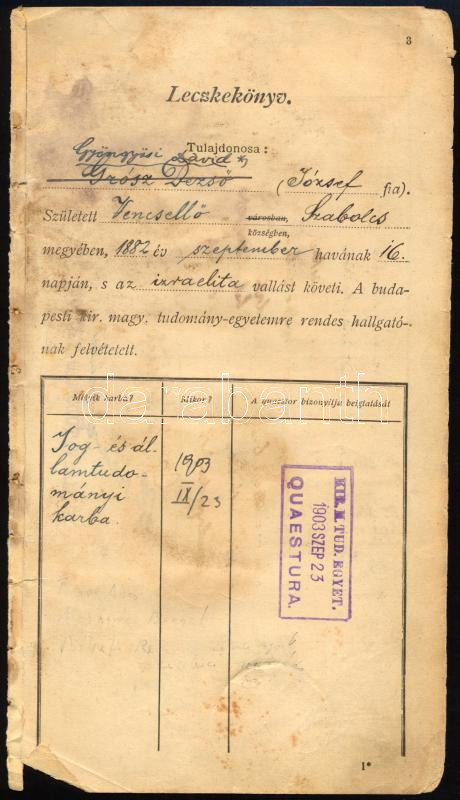 3
Lecskekönyv.
Tulajdonosa:
Gyöngyösi Dávid
Grósz Dezső (József fia).
Született Vencsellő városban, Szabolcs
községben,
megyében, 1882 év szeptember havának 16
napján, s az izraelita vallást követi. A buda-
pesti kir. magy. tudomány-egyetemre rendes hallgató-
nak felvétetett.
Melyik karba? Mikor? A quaestor bizonyítja beigtatását
Jog- és ál-
lamtudo-
mányi
karba.
1903
IX/23
KIR. M. TUD. EGYET.
1903 SZEP 23
QUAESTURA.
darabanth
1*